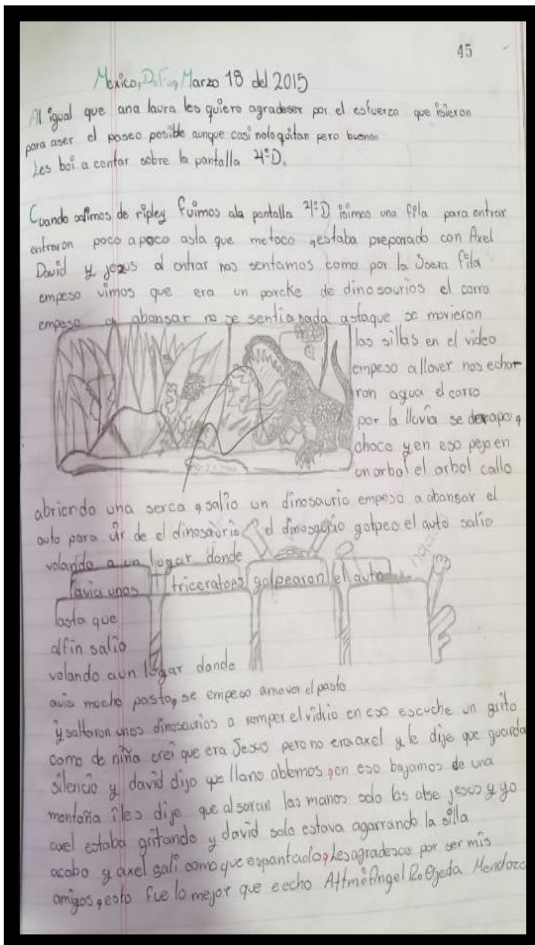 45
Mexico, D.F., Marzo 18 del 2015
Al igual que ana laura les quiero agradeser por el esfuerzo que isieron
para aser el paseo posible aunque casi nolo quitan pero bueno.
Les boi a contar sobre la pantalla 4°D.
Cuando salimos de ripley fuimos ala pantalla 4°D isimos una fila para entrar
entraron poco a poco asta que metoco, estaba preparado con Axel
David y jezus al entrar nos sentamos como por la 3sera fila
empeso vimos que era un parcke de dinosaurios el carro
empeso a abansar no se sentia nada astaque se movieron
las sillas en el video
empeso allover nos echar
ron agua el carro
por la lluvia se derapo,
choco y en eso pejo en
un arbol el arbol callo
abriendo una serca, salio un dinosaurio empeso a abansar el
auto para ir de el dinosaurio, el dinosaurio golpeo el auto salio
volando a un lugar donde
avia unos triceratops golpearon el auto
asta que
alfin salio
volando aun lugar donde
avia mucho pasto, se empeso amover el pasto
y saltaron unos dinosaurios a romper el vidrio en eso escuche un grito
como de niña crei que era Jesus pero no era axel y le dije que guarda
silencio y david dijo que llano ablemos, en eso bajamos de una
montaña iles dije que alsaran las manos solo las alse jesus y yo
axel estaba gritando y david solo estava agarrando la silla
acabo y axel sali como que espantado, Les agradesco por ser mis
amigos, esto fue lo mejor que e echo Attm: Angel R. Ojeda Mendoza